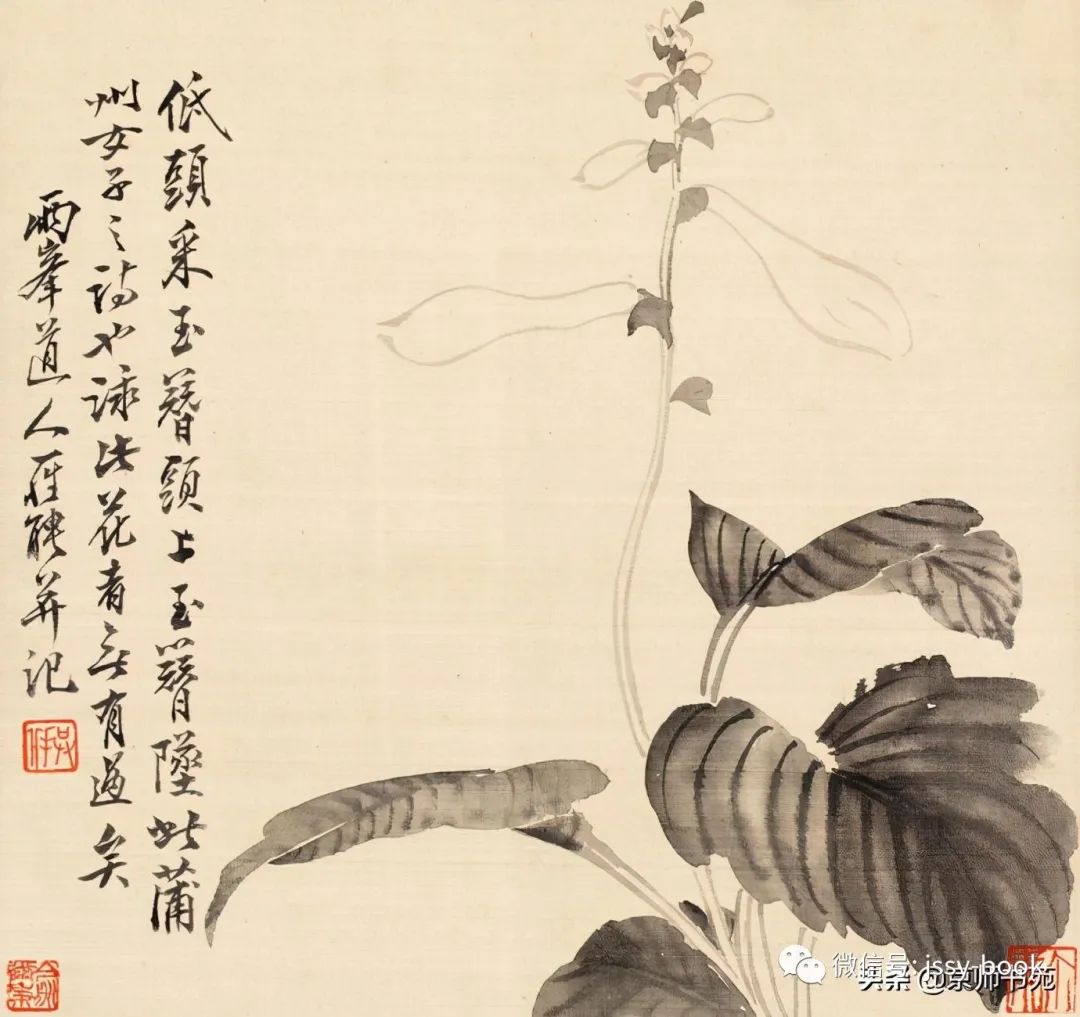 低頭采玉簪頭上玉簪墜此蒲
州女子之詩也詠此花者無有過矣
兩峯道人羅聘并記
微信号: jssy-book
头条 @京师书苑